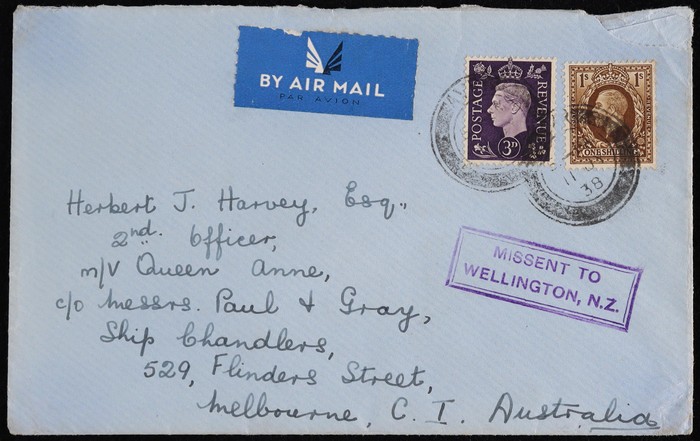 BY AIR MAIL
PAR AVION
POSTAGE
REVENUE
3D
1S
1S
ONE SHILLING
38
MISSENT TO
WELLINGTON, N.Z.
Herbert J. Harvey, Esq.,
2nd. Officer,
m/V Queen Anne,
c/o Messrs. Paul & Gray,
Ship Chandlers,
529, Flinders Street,
Melbourne, C. I. Australia